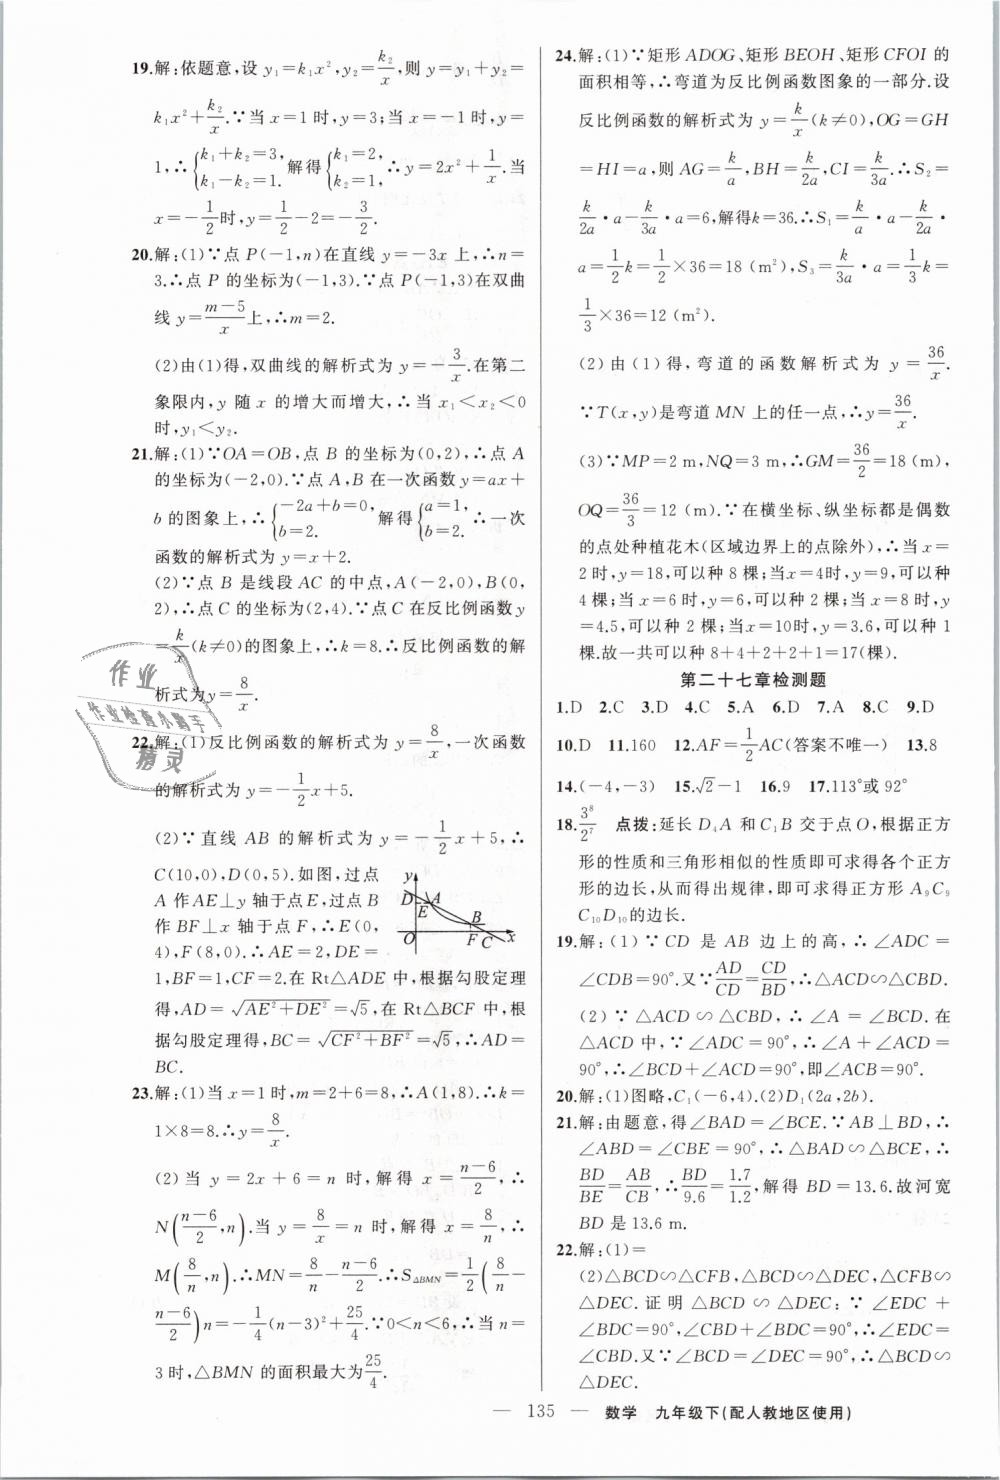 19.解:依题意,设 y₁=k₁x²,y₂=k₂/x,则 y=y₁+y₂=
k₁x²+k₂/x.∵当 x=1 时,y=3;当 x=-1 时,y=
1,∴{k₁+k₂=3, k₁-k₂=1. 解得{k₁=2, k₂=1, ∴y=2x²+1/x.当
x=-1/2时,y=1/2-2=-3/2.
20.解:(1)∵点 P(-1,n)在直线 y=-3x 上,∴n=
3.∴点 P 的坐标为(-1,3).∵点 P(-1,3)在双曲
线 y=(m-5)/x上,∴m=2.
(2)由(1)得,双曲线的解析式为 y=-3/x.在第二
象限内,y 随 x 的增大而增大,∴当 x₁<x₂<0
时,y₁<y₂.
21.解:(1)∵OA=OB,点 B 的坐标为(0,2),∴点 A
的坐标为(-2,0).∵点 A,B 在一次函数 y=ax+
b 的图象上,∴{-2a+b=0, b=2. 解得{a=1, b=2. ∴一次
函数的解析式为 y=x+2.
(2)∵点 B 是线段 AC 的中点,A(-2,0),B(0,
2),∴点 C 的坐标为(2,4).∵点 C 在反比例函数 y
=k/x(k≠0)的图象上,∴k=8.∴反比例函数的解
析式为 y=8/x.
22.解:(1)反比例函数的解析式为 y=8/x,一次函数
的解析式为 y=-1/2x+5.
(2)∵直线 AB 的解析式为 y=-1/2x+5,∴
C(10,0),D(0,5).如图,过点
A 作 AE⊥y 轴于点 E,过点 B
作 BF⊥x 轴于点 F,∴E(0,
4),F(8,0).∴AE=2,DE=
1,BF=1,CF=2.在 Rt△ADE 中,根据勾股定理
得,AD=√(AE²+DE²)=√5,在 Rt△BCF 中,根
据勾股定理得,BC=√(CF²+BF²)=√5,∴AD=
BC.
y
D
E
A
B
O
F
C
x
23.解:(1)当 x=1 时,m=2+6=8,∴A(1,8).∴k=
1×8=8.∴y=8/x.
(2)当 y=2x+6=n 时,解得 x=(n-6)/2,∴
N((n-6)/2,n).当 y=8/x=n 时,解得 x=8/n,∴
M(8/n,n).∴MN=8/n-(n-6)/2.∴S△BMN=1/2(8/n-
(n-6)/2)n=-1/4(n-3)²+25/4.∵0<n<6,∴当 n=
3 时,△BMN 的面积最大为25/4.
24.解:(1)∵矩形 ADOG、矩形 BEOH、矩形 CFOI 的
面积相等,∴弯道为反比例函数图象的一部分.设
反比例函数的解析式为 y=k/x(k≠0),OG=GH
=HI=a,则 AG=k/a,BH=k/2a,CI=k/3a.∴S₂=
k/2a·a-k/3a·a=6,解得k=36.∴S₁=k/a·a-k/2a·
a=1/2k=1/2×36=18(m²),S₃=k/3a·a=1/3k=
1/3×36=12(m²).
(2)由(1)得,弯道的函数解析式为 y=36/x.
∵T(x,y)是弯道 MN 上的任一点,∴y=36/x.
(3)∵MP=2 m,NQ=3 m,∴GM=36/2=18(m),
OQ=36/3=12(m).∵在横坐标、纵坐标都是偶数
的点处种植花木(区域边界上的点除外),∴当 x=
2时,y=18,可以种 8 棵;当 x=4时,y=9,可以种
4 棵;当 x=6时,y=6,可以种 2 棵;当 x=8 时,y
=4.5,可以种 2 棵;当 x=10时,y=3.6,可以种 1
棵.故一共可以种 8+4+2+2+1=17(棵).
第二十七章检测题
1.D 2.C 3.D 4.C 5.A 6.D 7.A 8.C 9.D
10.D 11.160 12.AF=1/2AC(答案不唯一) 13.8
14.(-4,-3) 15.√2-1 16.9 17.113°或 92°
18.3⁸/2⁷ 点拨:延长 D₄A 和 C₁B 交于点O,根据正方
形的性质和三角形相似的性质即可求得各个正方
形的边长,从而得出规律,即可求得正方形 A₉C₉
C₁₀D₁₀的边长.
19.解:(1)∵CD 是 AB 边上的高,∴∠ADC=
∠CDB=90°.又∵AD/CD=CD/BD,∴△ACD∽△CBD.
(2)∵△ACD∽△CBD,∴∠A=∠BCD.在
△ACD 中,∵∠ADC=90°,∴∠A+∠ACD=
90°,∴∠BCD+∠ACD=90°,即∠ACB=90°.
20.解:(1)图略,C₁(-6,4).(2)D₁(2a,2b).
21.解:由题意,得∠BAD=∠BCE.∵AB⊥BD,∴
∠ABD=∠CBE=90°,∴△BAD∽△BCE,∴
BD/BE=AB/CB,∴BD/9.6=1.7/1.2,解得 BD=13.6.故河宽
BD 是 13.6 m.
22.解:(1)=
(2)△BCD∽△CFB,△BCD∽△DEC,△CFB∽
△DEC.证明△BCD∽△DEC:∵∠EDC+
∠BDC=90°,∠CBD+∠BDC=90°,∴∠EDC=
∠CBD.又∵∠BCD=∠DEC=90°,∴△BCD∽
△DEC.
作业
作业检查小助手
精灵
— 135 — 数学 九年级下(配人教地区使用)